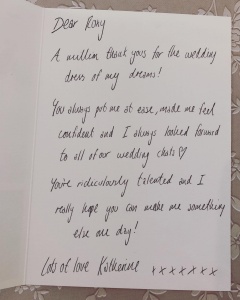 Dear Rony
A million thank yous for the wedding
dress of my dreams!
You always put me at ease, made me feel
confident and I always looked forward
to all of our wedding chats ♡
You're ridiculously talented and I
really hope you can make me something
else one day!
Lots of love Katherine x x x x x x x